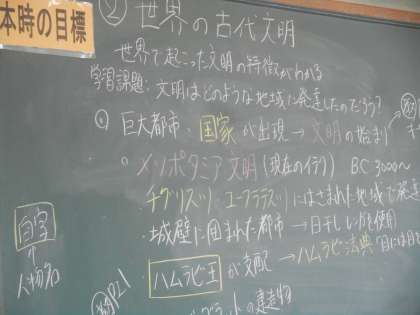 本時の目標
② 世界の古代文明
世界で起こった文明の特徴がわかる
学習課題:文明はどのような地域に発達したのだろう?
巨大都市、国家が出現→文明の始まり
メソポタミア文明(現在のイラク) BC3000~
チグリス川 ユーフラテス川にはさまれた地域で発達
・城壁に囲まれた都市→日干しレンガ使用
ハムラビ王が支配→ハムラビ法典「目には目を
白字
↑
人物名
の建造物